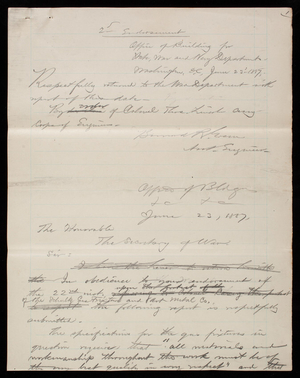 2d Endorsement
Office of Building for
State, War and Navy Departments
Washington, D.C. June 23, 1887.
Respectfully returned to the War Department with
report of this date.
By order of Colonel Thos. Lincoln Casey
Corps of Engineers
Bernard R. Green
Asst. Engineer
Office of Bldg
&c &c
June 23, 1887.
The Honorable
The Secretary of War
Sir:
In obedience to your endorsement of
the 22nd inst.
of the and Art Metal Co., the following report is respectfully
submitted.
The specifications for the gas fixtures in
question require that "all materials and
workmanship throughout the work must be of
the very best quality in every respect" and